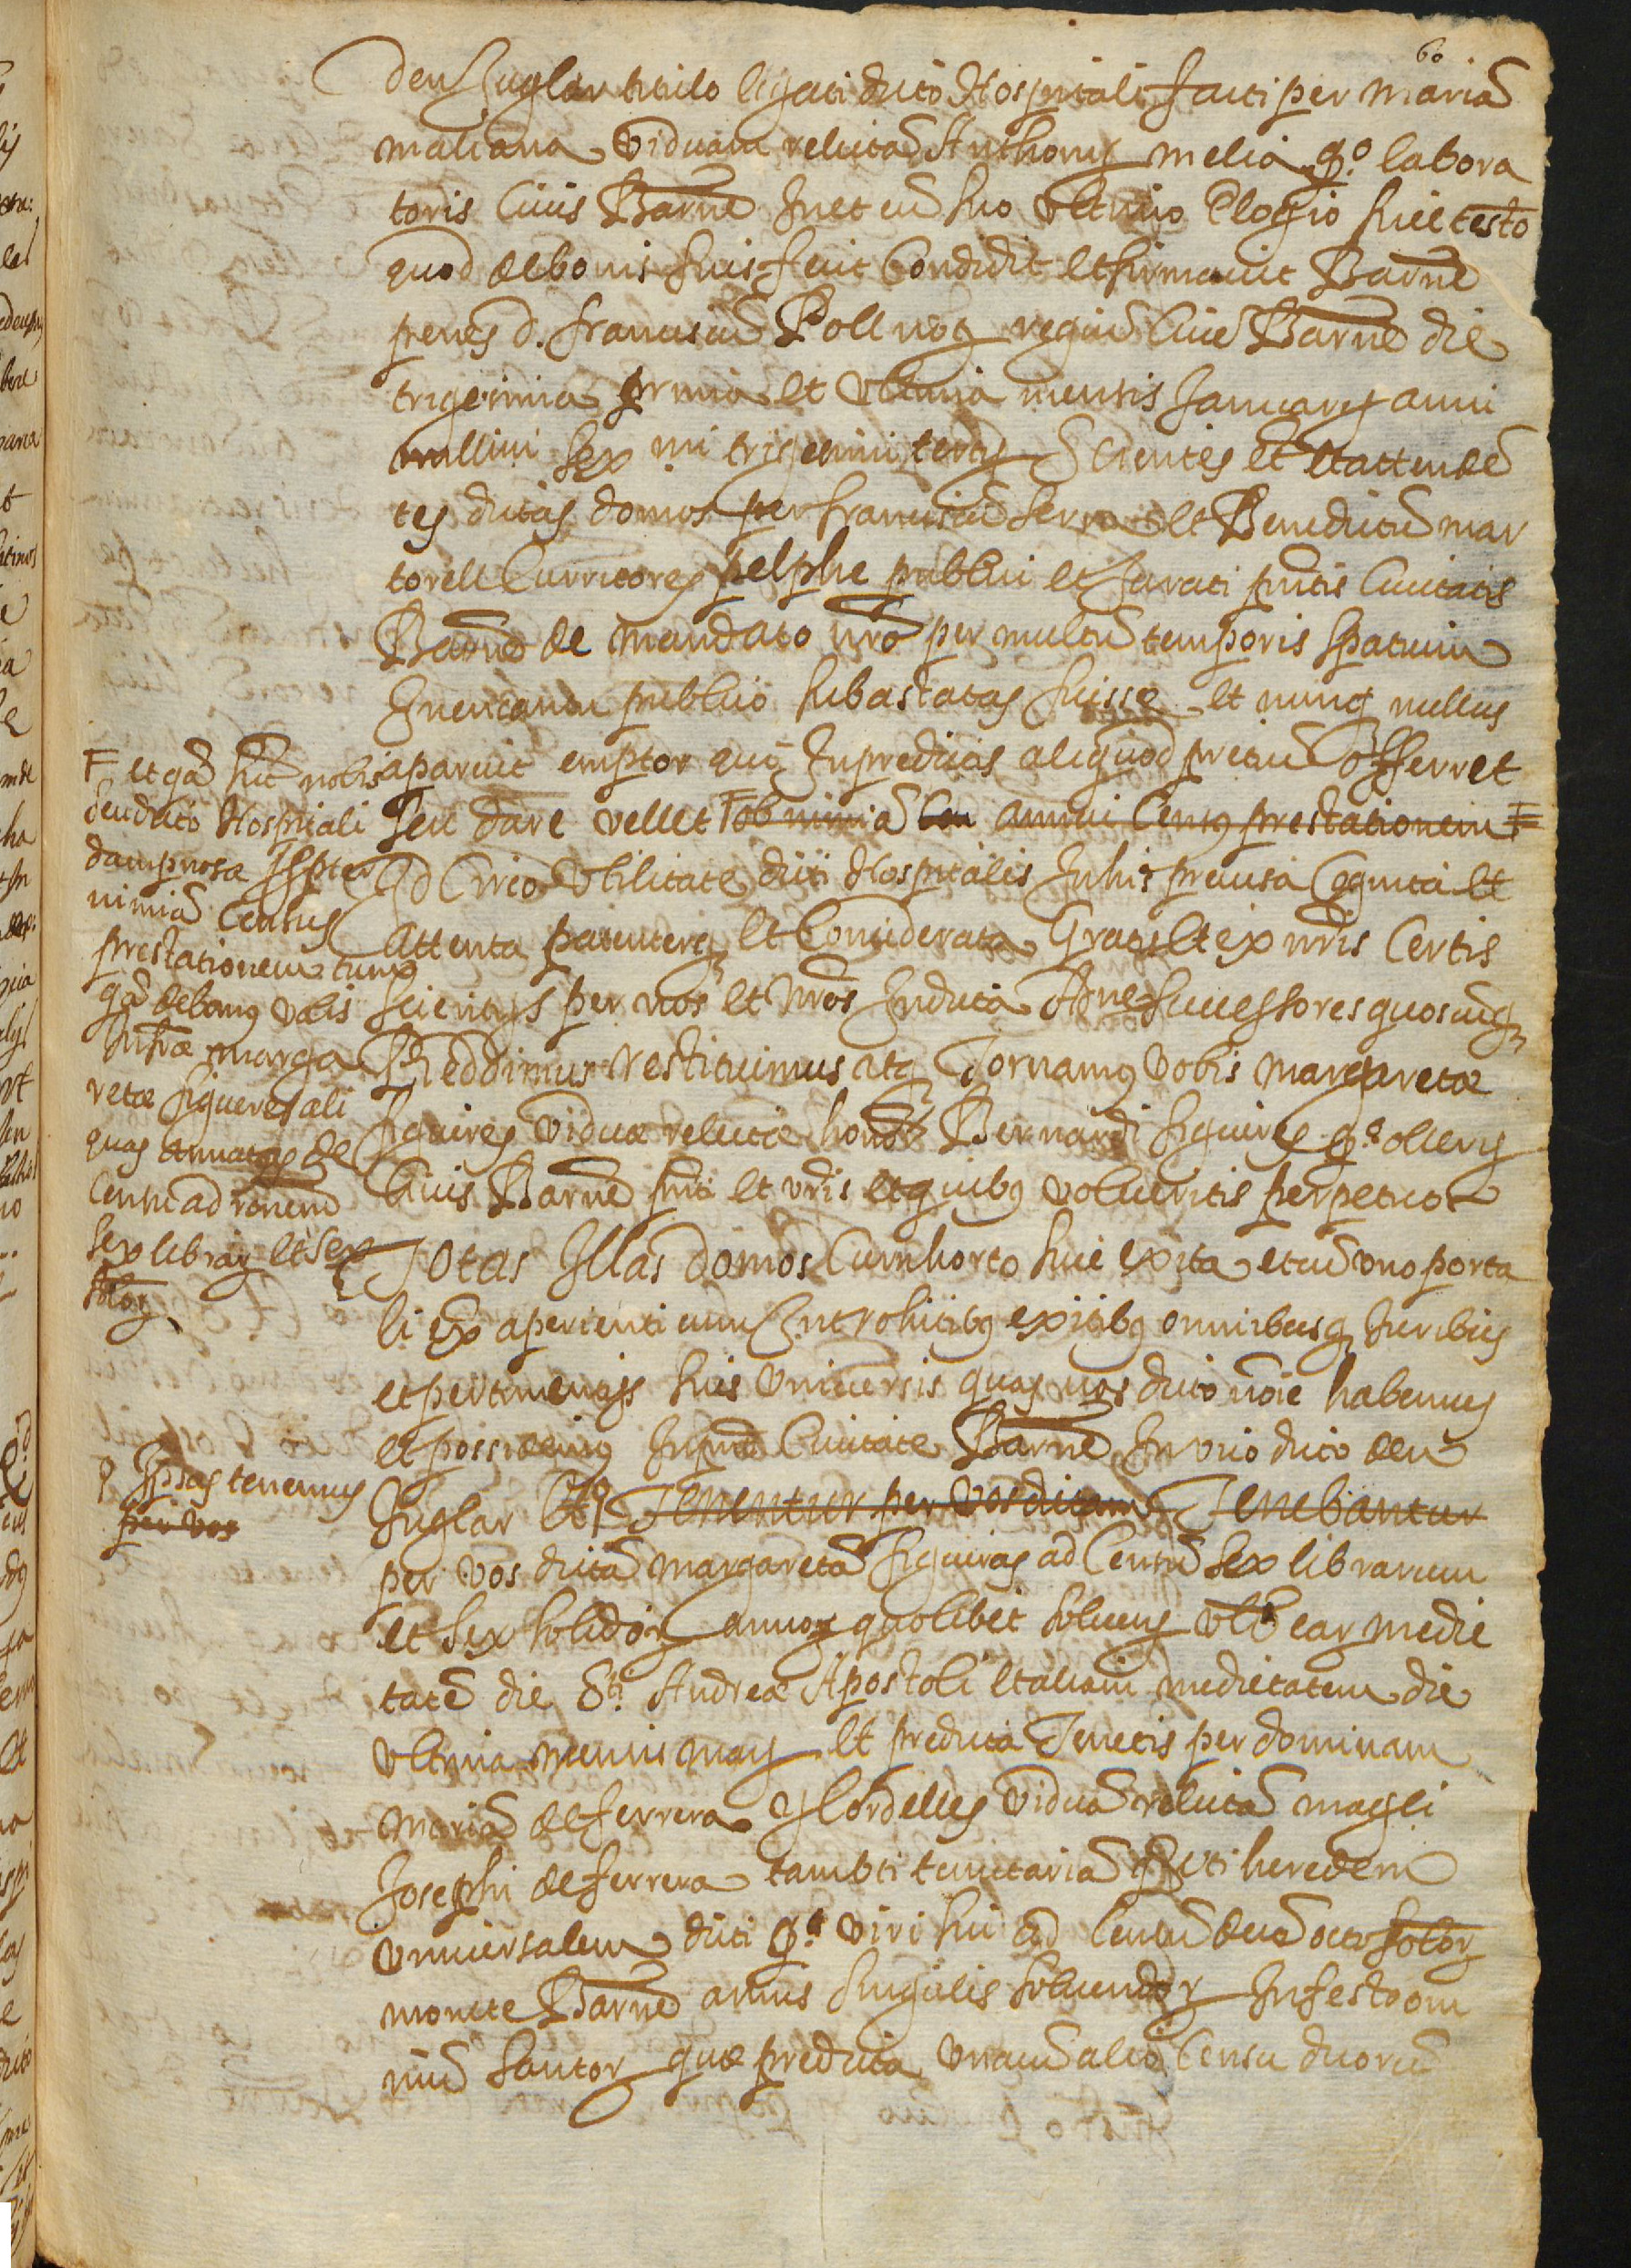 60
den Juglar titulo legati dicto Hospitali facti per mariã
maliana viduam relictã Anthonij melia qº labora
toris Civis Barne In et cũ suo ultimo Elogio sive testo
quod de bonis suis fecit condidit et firmavit Barne
penes d. franciscũ Poll noẽ regiũ Cive Barne die
trigesima prima et ultima mensis Januarij anni
millimi sex mi trigesimi tertij Scientes et Et attendẽ
tes dictas domos per franciscũ serra et Benedictũ mar
torell Curritores pelphe publici et Jurati pñtis Civitatis
Barne de mandato nro per multũ temporis spatium
In encantu publico subastatas fuisse et nunq nullus
aparuit emptor qui In predictas aliquod pretiũ offerret
seu dare vellet F ob nimiã seu annui Census prestationem F
Id Circo Utilitate dicti Hospitalis In his previsa Cognita et
attenta patenterq et Considerata Gratis et ex nris Certis
scientijs per nos et nros In dicta Aõne successores quoscũq
Reddimus restituimus atq Tornamus vobis margaretæ
figueres viduæ relictæ honor Bernardi figueres qº ollerij
Civis Barne pñti et vris et quibus volueritis perpetuo
Totas Illas domos Cum horto sive exita et cũ uno porta
li ex aperienti cum Introhitibus exitibus omnibusq Juribus
et pertinencijs suis Universis quas nos dicto noĩe habemus
et possidemus In pñti Civitate Barne In vico dicto den
Juglar Et Tenentur per vos dictam Tenebantur
per vos dictã margaretã figueras ad Censũ sex librarum
et sex solidor annoq quolibet solvens ultº ear medie
tatẽ die Sti Andreæ Apostoli Et aliam medietatem die
ultima mensis maij Et predicta Tenetis per dominam
Mariã de ferrera y Cordelles viduã relictã magci
Josephi de ferrera tam uti tenutariã q uti heredem
universalem dicti qº viri sui ad Censũ decẽ octo solor
monete Barne annis singulis solvendor In festo om
niũ Sanctor quæ predicta una cũ alio Censu duorũ
F et qã sũt nobis
deu dicto Hospitali
dampnosa propter
nimiã Census
prestationem tunc
qã debemus vobis
Infræ marga
retæ figueres ali
quas annatas de
Censu ad ronem
sex libray et sex
solor
Ipsas tenemus
per vos